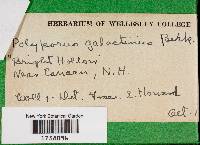 HERBARIUM OF WELLESLEY COLLEGE
Polyporus galactinus Berk.
"Bright Hollow"
Near Canaan, N.H.
Coll. & Det.
Oct.
New York Botanical Garden